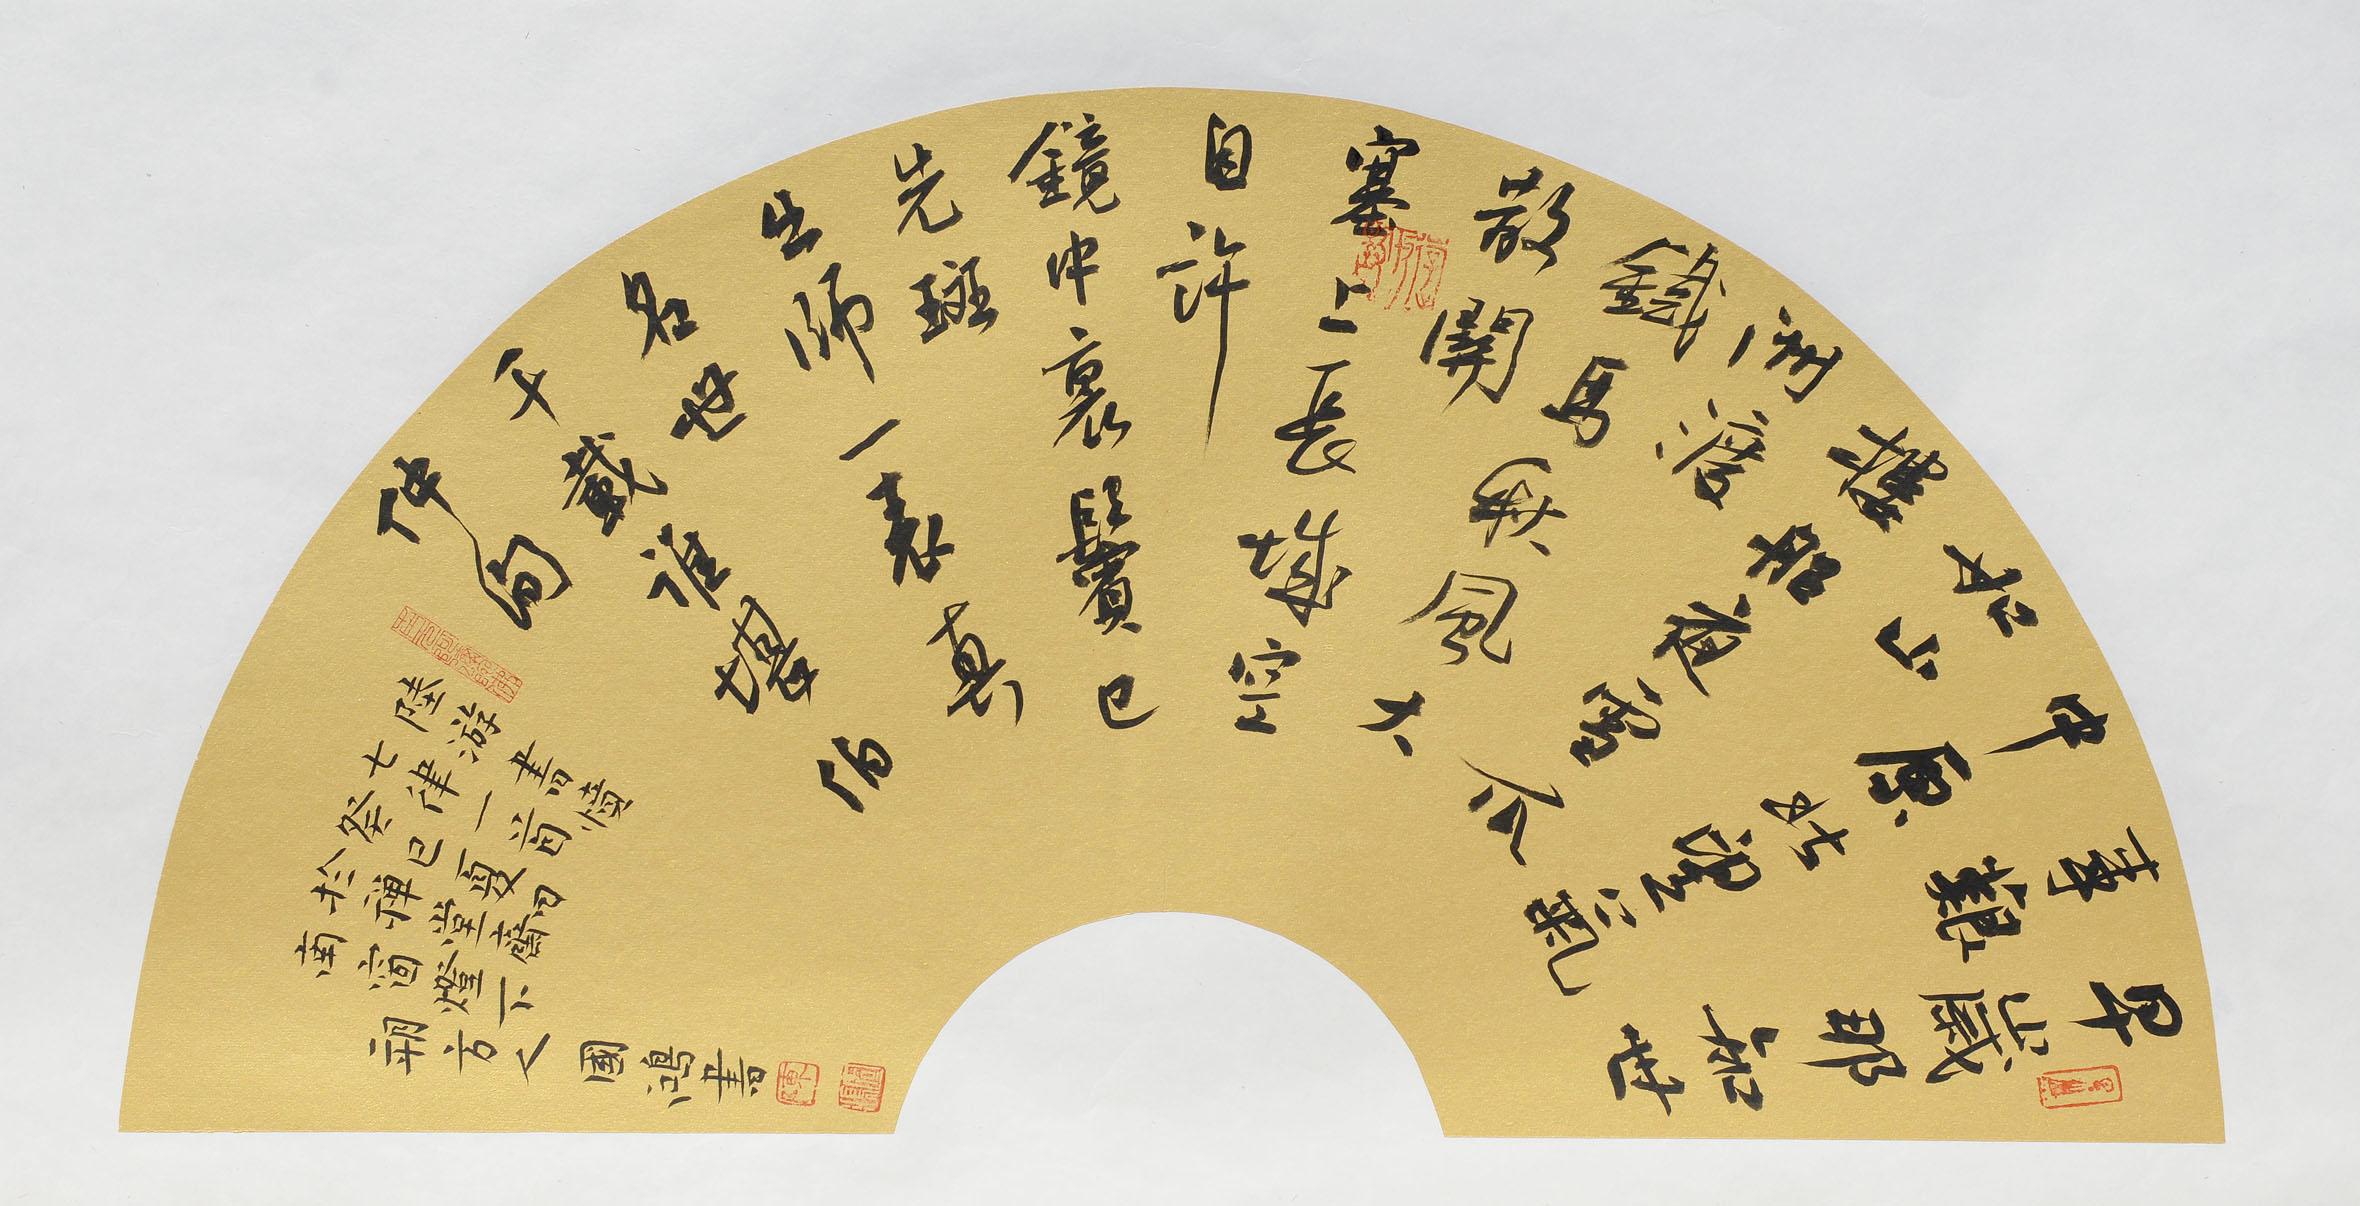 早歲那知世
事艱
中原北望氣
如山
樓船夜雪瓜
洲渡
鐵馬秋風大
散關
塞上長城空
自許
鏡中衰鬢已
先斑
出師一表真
名世
千載誰堪伯
仲間
陸游書憤
七律一首
癸巳夏日
於禪堂齋
南窗燈下
朔方人國鴻書